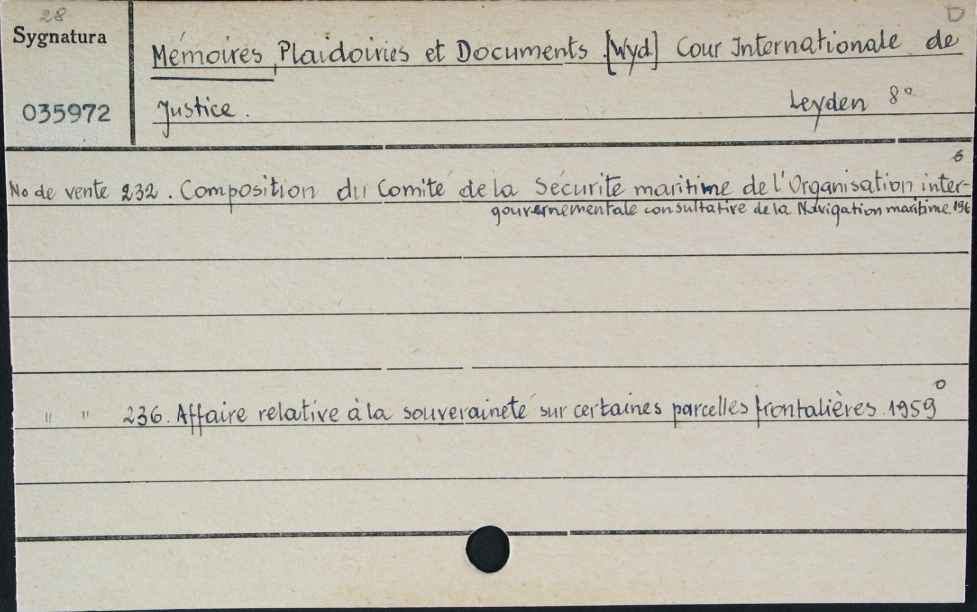 28
Sygnatura
035972
D
Mémoires, Plaidoiries et Documents. [Wyd] Cour Internationale de
Justice. Leyden 8°
No de vente 232. Composition du Comité de la Sécurité maritime de l'Organisation inter-
gouvernementale consultative de la Navigation maritime.
" " 236. Affaire relative à la souveraineté sur certaines parcelles frontalières. 1959